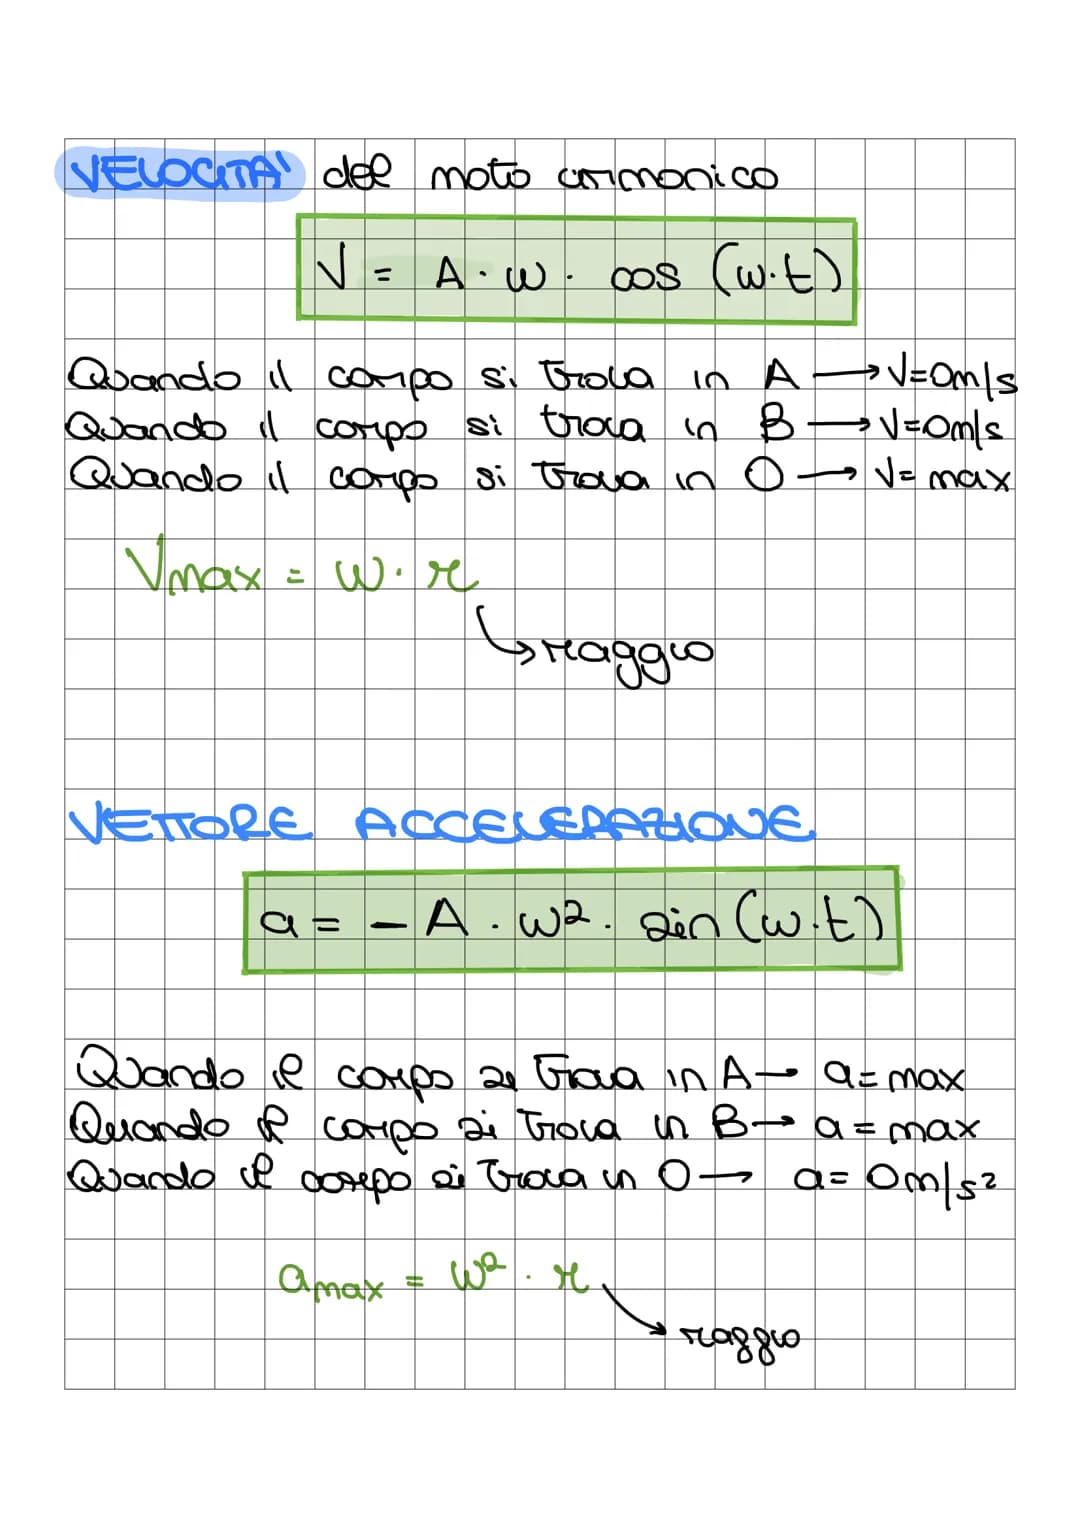 VELOCITA' del moto armonico
V = A · w · cos (w·t)
Quando il corpo si trova in A → V=0m/s
Quando il corpo si trova in B → V=0m/s
Quando il corpo si trova in O → V= max
Vmax = w · r
↳ raggio
VETTORE ACCELERAZIONE
a = - A · w² · sin (w·t)
Quando il corpo si trova in A → a= max
Quando il corpo si trova in B → a= max
Quando il corpo si trova in O → a= 0m/s²
amax = w² · r
→ raggio